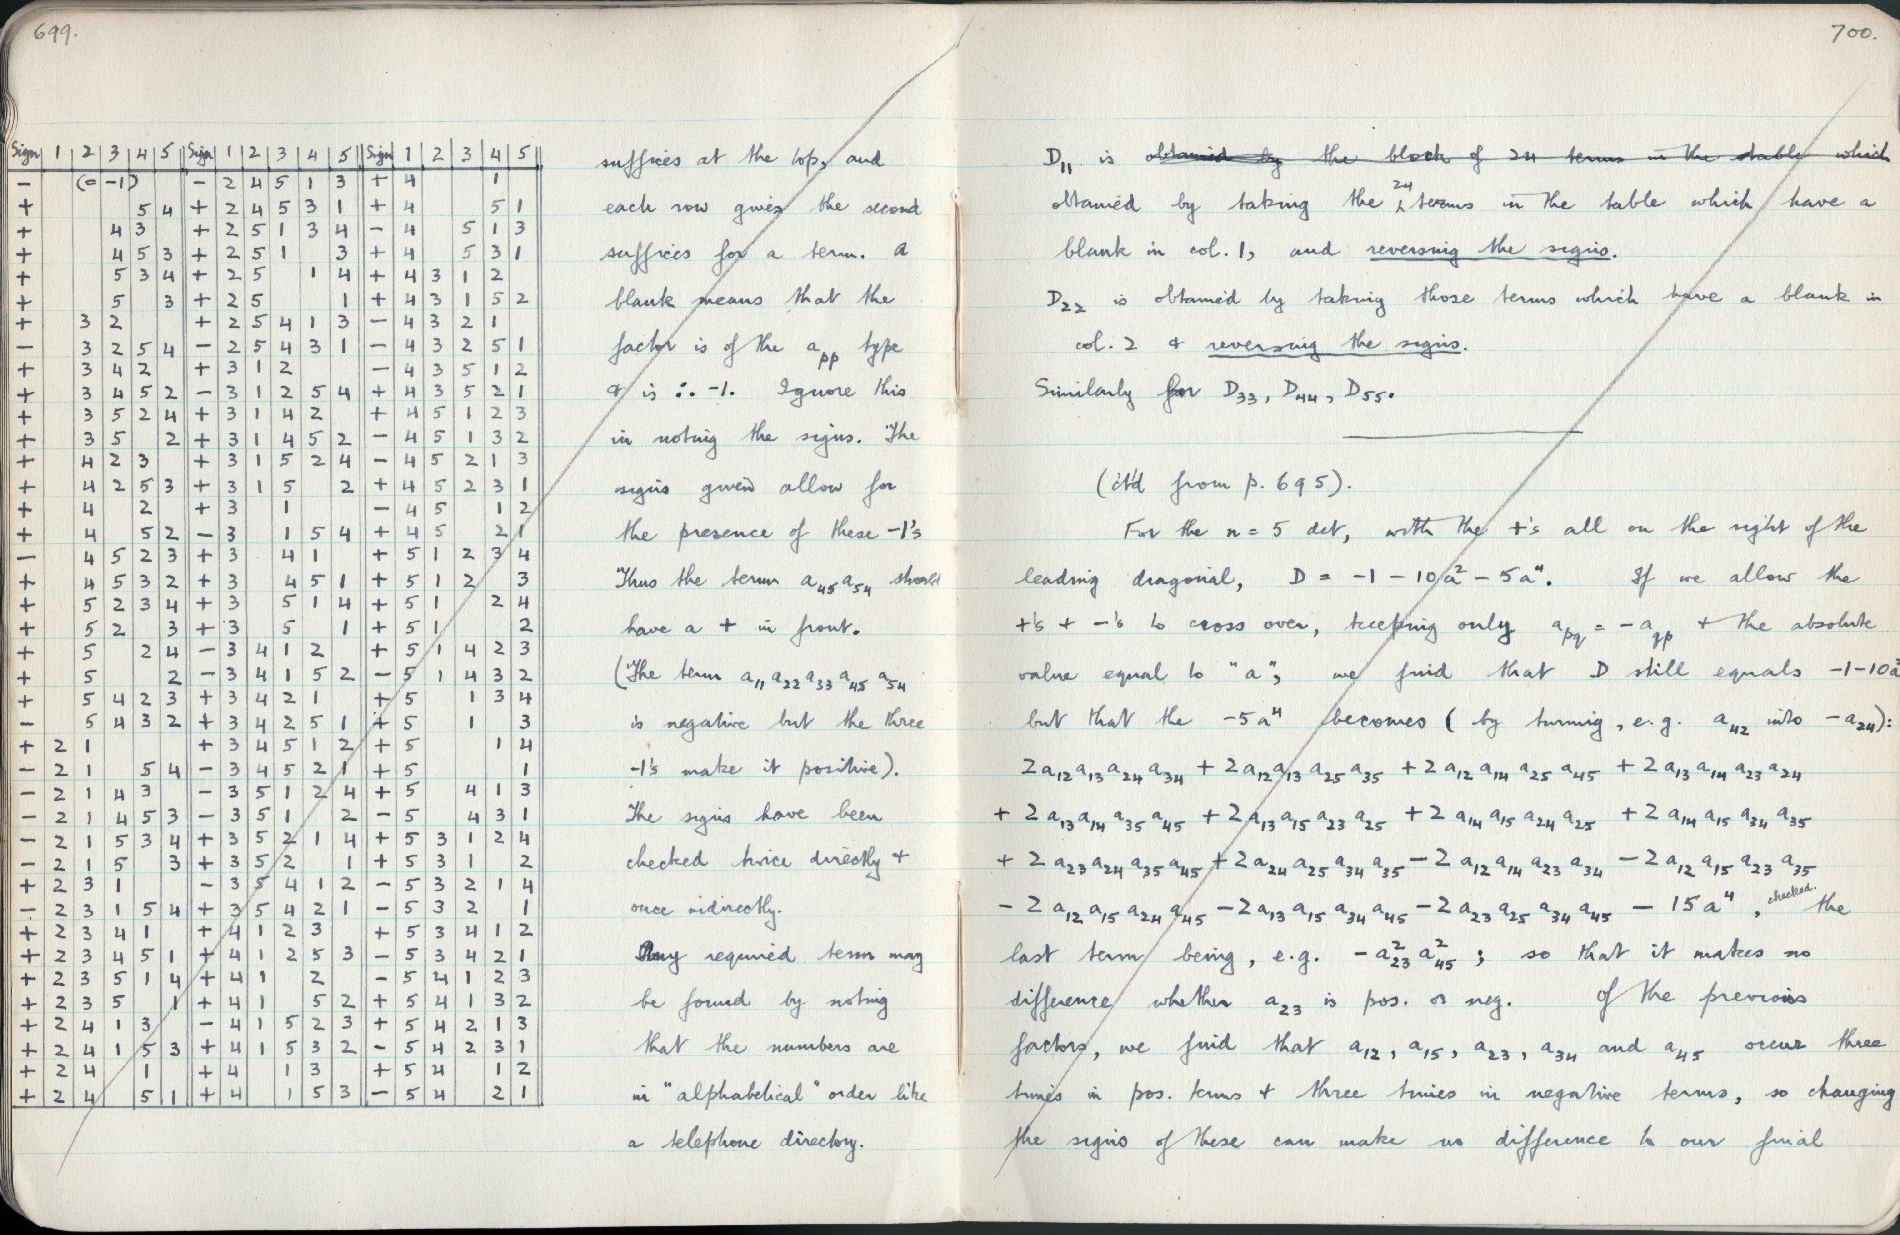 699.
Sign 1 2 3 4 5 Sign 1 2 3 4 5 Sign 1 2 3 4 5
− (= -1) − 2 4 5 1 3 + 4 1
+ 5 4 + 2 4 5 3 1 + 4 5 1
+ 4 3 + 2 5 1 3 4 − 4 5 1 3
+ 4 5 3 + 2 5 1 3 + 4 5 3 1
+ 5 3 4 + 2 5 1 4 + 4 3 1 2
+ 5 3 + 2 5 1 + 4 3 1 5 2
+ 3 2 + 2 5 4 1 3 − 4 3 2 1
− 3 2 5 4 − 2 5 4 3 1 − 4 3 2 5 1
+ 3 4 2 + 3 1 2 − 4 3 5 1 2
+ 3 4 5 2 − 3 1 2 5 4 + 4 3 5 2 1
+ 3 5 2 4 + 3 1 4 2 + 4 5 1 2 3
+ 3 5 2 + 3 1 4 5 2 − 4 5 1 3 2
+ 4 2 3 + 3 1 5 2 4 − 4 5 2 1 3
+ 4 2 5 3 + 3 1 5 2 + 4 5 2 3 1
+ 4 2 + 3 1 − 4 5 1 2
+ 4 5 2 − 3 1 5 4 + 4 5 2 1
− 4 5 2 3 + 3 4 1 + 5 1 2 3 4
+ 4 5 3 2 + 3 4 5 1 + 5 1 2 3
+ 5 2 3 4 + 3 5 1 4 + 5 1 2 4
+ 5 2 3 + 3 5 1 + 5 1 2
+ 5 2 4 − 3 4 1 2 + 5 1 4 2 3
+ 5 2 − 3 4 1 5 2 − 5 1 4 3 2
+ 5 4 2 3 + 3 4 2 1 + 5 1 3 4
− 5 4 3 2 + 3 4 2 5 1 + 5 1 3
+ 2 1 + 3 4 5 1 2 + 5 1 4
− 2 1 5 4 − 3 4 5 2 1 + 5 1
− 2 1 4 3 − 3 5 1 2 4 + 5 4 1 3
− 2 1 4 5 3 − 3 5 1 2 − 5 4 3 1
− 2 1 5 3 4 + 3 5 2 1 4 + 5 3 1 2 4
− 2 1 5 3 + 3 5 2 1 + 5 3 1 2
+ 2 3 1 − 3 5 4 1 2 − 5 3 2 1 4
− 2 3 1 5 4 + 3 5 4 2 1 − 5 3 2 1
+ 2 3 4 1 + 4 1 2 3 + 5 3 4 1 2
+ 2 3 4 5 1 + 4 1 2 5 3 − 5 3 4 2 1
+ 2 3 5 1 4 + 4 1 2 − 5 4 1 2 3
+ 2 3 5 1 + 4 1 5 2 + 5 4 1 3 2
+ 2 4 1 3 − 4 1 5 2 3 + 5 4 2 1 3
+ 2 4 1 5 3 + 4 1 5 3 2 − 5 4 2 3 1
+ 2 4 1 + 4 1 3 + 5 4 1 2
+ 2 4 5 1 + 4 1 5 3 − 5 4 2 1
suffices at the top, and
each row gives the second
suffices for a term. A
blank means that the
factor is of the a_pp type
& is ∴ -1. Ignore this
in noting the signs. The
signs given allow for
the presence of these -1's
Thus the term a_45 a_54 should
have a + in front.
(The term a_11 a_22 a_33 a_45 a_54
is negative but the three
-1's make it positive).
The signs have been
checked twice directly +
once indirectly.
Any required term may
be found by noting
that the numbers are
in "alphabetical" order like
a telephone directory.
700.
D_11 is obtained by the block of 24 terms in the table which
obtained by taking the 24 terms in the table which have a
blank in col. 1, and reversing the signs.
D_22 is obtained by taking those terms which have a blank in
col. 2 & reversing the signs.
Similarly for D_33, D_44, D_55.
(ct'd from p. 695).
For the n = 5 det, with the +'s all on the right of the
leading diagonal, D = -1 - 10a² - 5a⁴. If we allow the
+'s + -'s to cross over, keeping only a_pq = -a_qp + the absolute
value equal to "a", we find that D still equals -1-10a²
but that the -5a⁴ becomes ( by turning, e.g. a_42 into -a_24):
2a_12 a_13 a_24 a_34 + 2a_12 a_13 a_25 a_35 + 2a_12 a_14 a_25 a_45 + 2a_13 a_14 a_23 a_24
+ 2a_13 a_14 a_35 a_45 + 2a_13 a_15 a_23 a_25 + 2a_14 a_15 a_24 a_25 + 2a_14 a_15 a_34 a_35
+ 2a_23 a_24 a_35 a_45 + 2a_24 a_25 a_34 a_35 - 2a_12 a_14 a_23 a_34 - 2a_12 a_15 a_23 a_35
- 2a_12 a_15 a_24 a_45 - 2a_13 a_15 a_34 a_45 - 2a_23 a_25 a_34 a_45 - 15a⁴, checked. the
last term being, e.g. -a²_23 a²_45 ; so that it makes no
difference whether a_23 is pos. or neg. Of the previous
factors, we find that a_12, a_15, a_23, a_34 and a_45 occur three
times in pos. terms + three times in negative terms, so changing
the signs of these can make no difference to our final